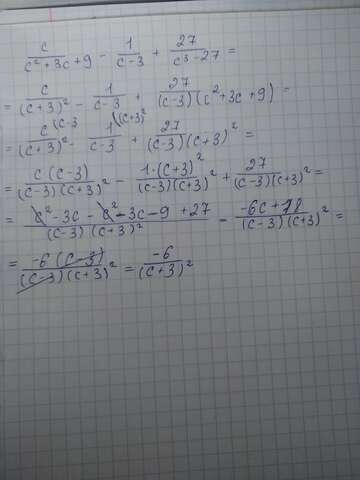 c/(c²+3c+9) - 1/(c-3) + 27/(c³-27) =
= c/(c+3)² - 1/(c-3) + 27/((c-3)(c²+3c+9)) =
= c\(c-3/(c+3)² - 1\(c+3)²/(c-3) + 27/((c-3)(c+3)²) =
= c(c-3)/((c-3)(c+3)²) - 1·(c+3)²/((c-3)(c+3)²) + 27/((c-3)(c+3)²) =
= (c²-3c-c²-3c-9+27)/((c-3)(c+3)²) = (-6c+18)/((c-3)(c+3)²) =
= -6(c-3)/((c-3)(c+3)²) = -6/(c+3)²